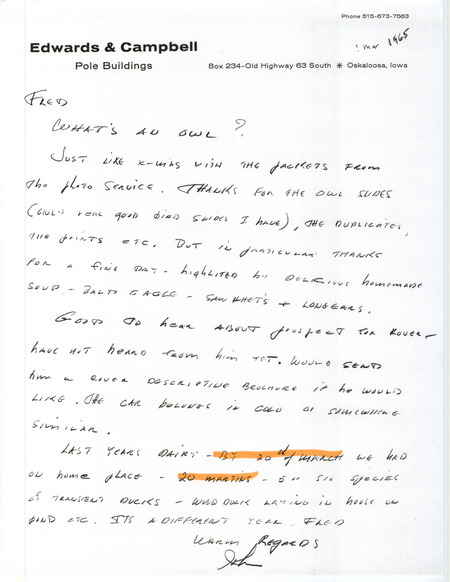 Phone 515-673-7563
1 Mar 1965
Edwards & Campbell
Pole Buildings
Box 234-Old Highway 63 South * Oskaloosa, Iowa
FRED
WHAT'S AN OWL?
JUST LIKE X-MAS WITH THE PACKETS FROM
THE PHOTO SERVICE. THANKS FOR THE OWL SLIDES
(ONLY REAL GOOD BIRD SLIDES I HAVE), THE DUPLICATES,
THE PRINTS ETC. BUT IN PARTICULAR THANKS
FOR A FINE DAY - highlited by DELICIOUS homemade
SOUP - BALD EAGLE - SAW WHET'S + LONGEARS.
GOOD TO hEAR ABOUT prospect for ROVER -
hAVE NOT hEARD from him YET. WOULD SEND
him A ROVER DESCRIPTIVE BROCHURE if he WOULD
LIKE. THE CAR BELONGS IN COLO OR SOMEWHERE
SIMILAR.
LAST YEARS DAIRY - BY 20th of MARCH WE HAD
ON home PLACE - 20 MARTINS - 5 or SIX SPECIES
of TRANSIENT DUCKS - WOOD DUCK LAYING IN house ON
POND ETC. ITS A DIFFERENT YEAR, FRED
WARM REGARDS
John